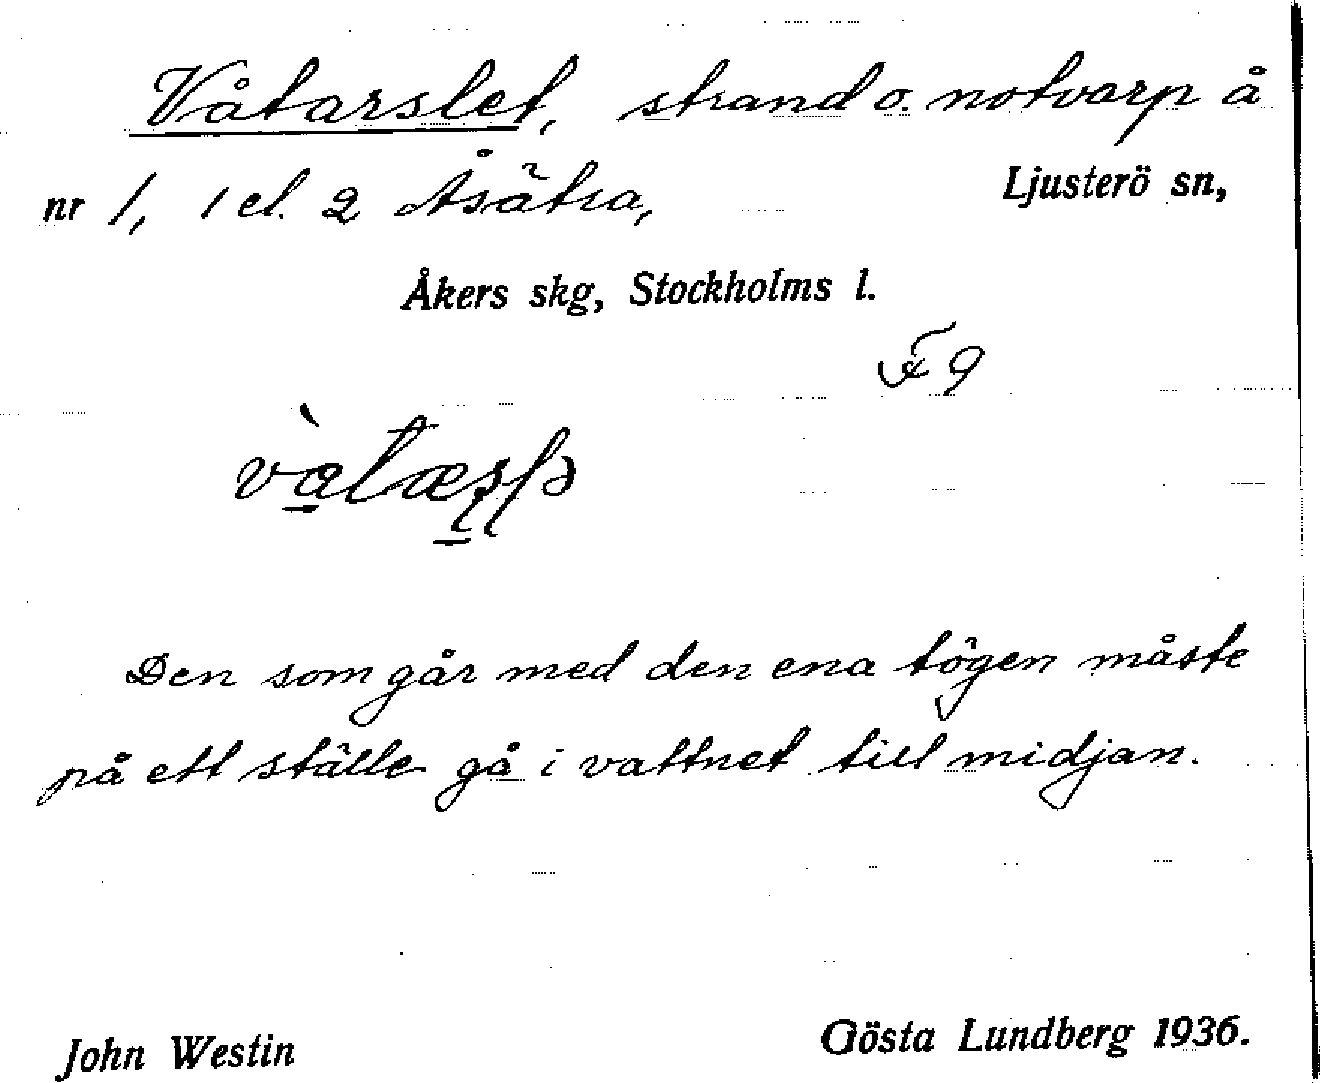 Våtarslet, strand o. notvarp å
nr 1, 1 el. 2 Åsätra, Ljusterö sn,
Åkers skg, Stockholms l.
F 9
Den som går med den ena tögen måste
på ett ställe gå i vattnet till midjan.
John Westin Gösta Lundberg 1936.